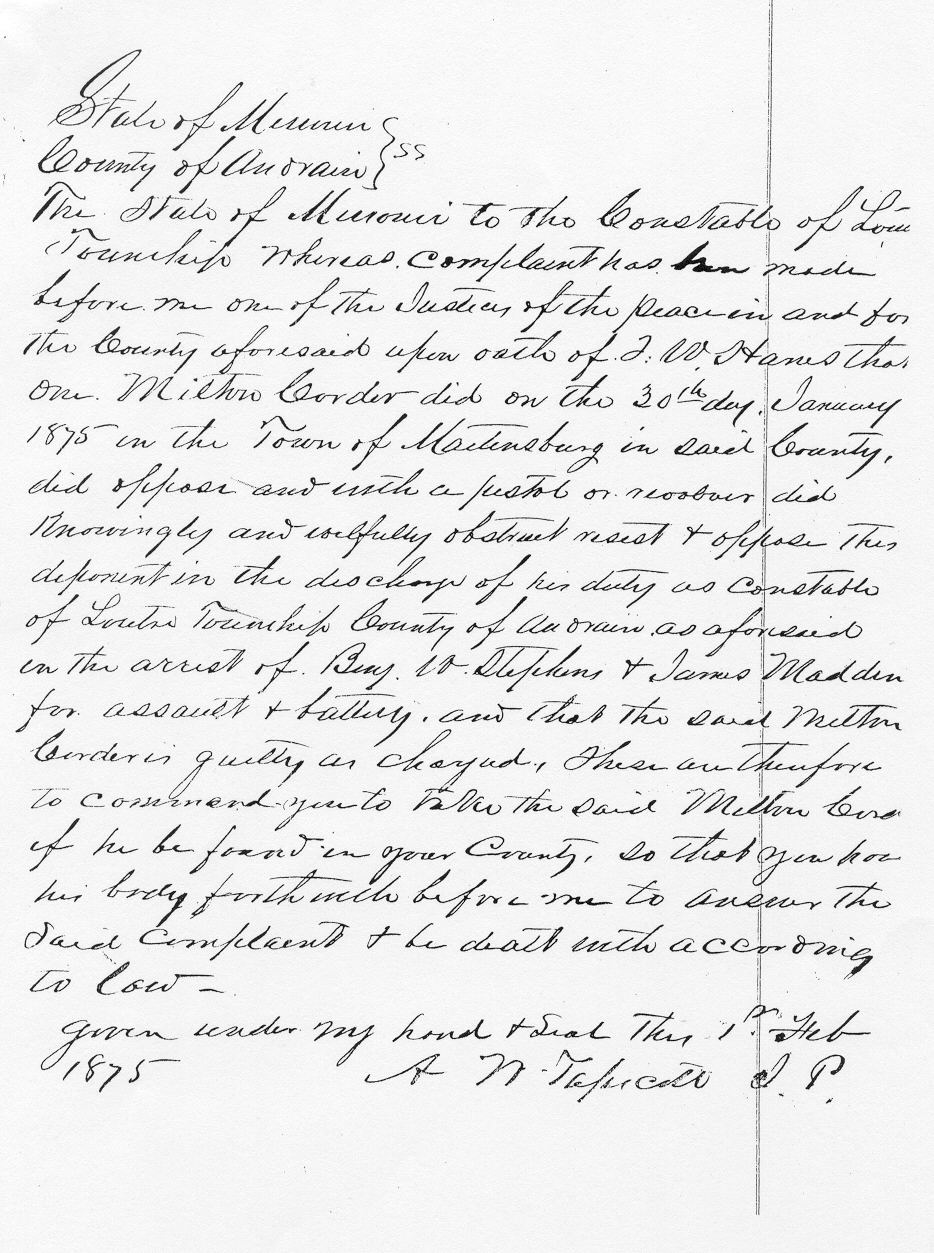 State of Missouri } ss
County of Audrain }
The State of Missouri to the Constable of Lou
Township Whereas complaint has been made
before me one of the Justices of the peace in and for
the County aforesaid upon oath of J. W. Hanes tha
one Milton Corder did on the 30th day January
1875 in the Town of Martinsburg in said County,
did oppose and with a pistol or revolver did
Knowingly and wilfully obstruct resist & oppose this
deponent in the discharge of his duty as constable
of Loutre Township County of Audrain as aforesaid
in the arrest of Benj. W. Stephens & James Madden
for assault & battery. and that the said Milton
Corder is guilty as charged, These are therefore
to command you to take the said Milton Cord
if he be found in your County, so that you hav
his body forthwith before me to answer the
Said Complaint & be dealt with according
to law –
given under my hand & Seal This 1st Feb
1875 A W Tapscott J. P.